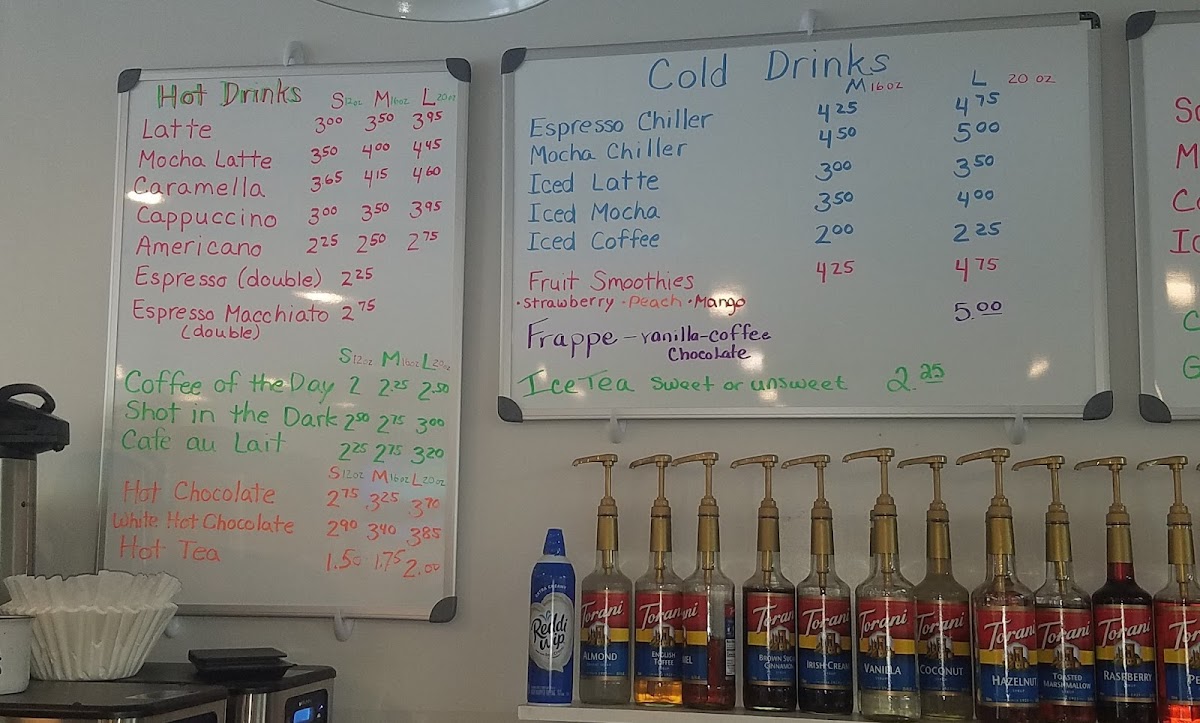 Hot Drinks S12oz M16oz L20oz
Latte 3.00 3.50 3.95
Mocha Latte 3.50 4.00 4.45
Caramella 3.65 4.15 4.60
Cappuccino 3.00 3.50 3.95
Americano 2.25 2.50 2.75
Espresso (double) 2.25
Espresso Macchiato 2.75
(double)
S12oz M16oz L20oz
Coffee of the Day 2 2.25 2.50
Shot in the Dark 2.50 2.75 3.00
Cafe au Lait 2.25 2.75 3.20
S12oz M16oz L20oz
Hot Chocolate 2.75 3.25 3.70
White Hot Chocolate 2.90 3.40 3.85
Hot Tea 1.50 1.75 2.00
Cold Drinks
M16oz L 20 oz
Espresso Chiller 4.25 4.75
Mocha Chiller 4.50 5.00
Iced Latte 3.00 3.50
Iced Mocha 3.50 4.00
Iced Coffee 2.00 2.25
Fruit Smoothies 4.25 4.75
•Strawberry •Peach •Mango
Frappe - vanilla-coffee 5.00
Chocolate
Ice Tea sweet or unsweet 2.25
Reddi
Wip
Torani
ALMOND
Torani
ENGLISH
TOFFEE
Torani
BROWN SUGAR
CINNAMON
Torani
IRISH CREAM
Torani
VANILLA
Torani
COCONUT
Torani
HAZELNUT
Torani
TOASTED
MARSHMALLOW
Torani
RASPBERRY
Torani